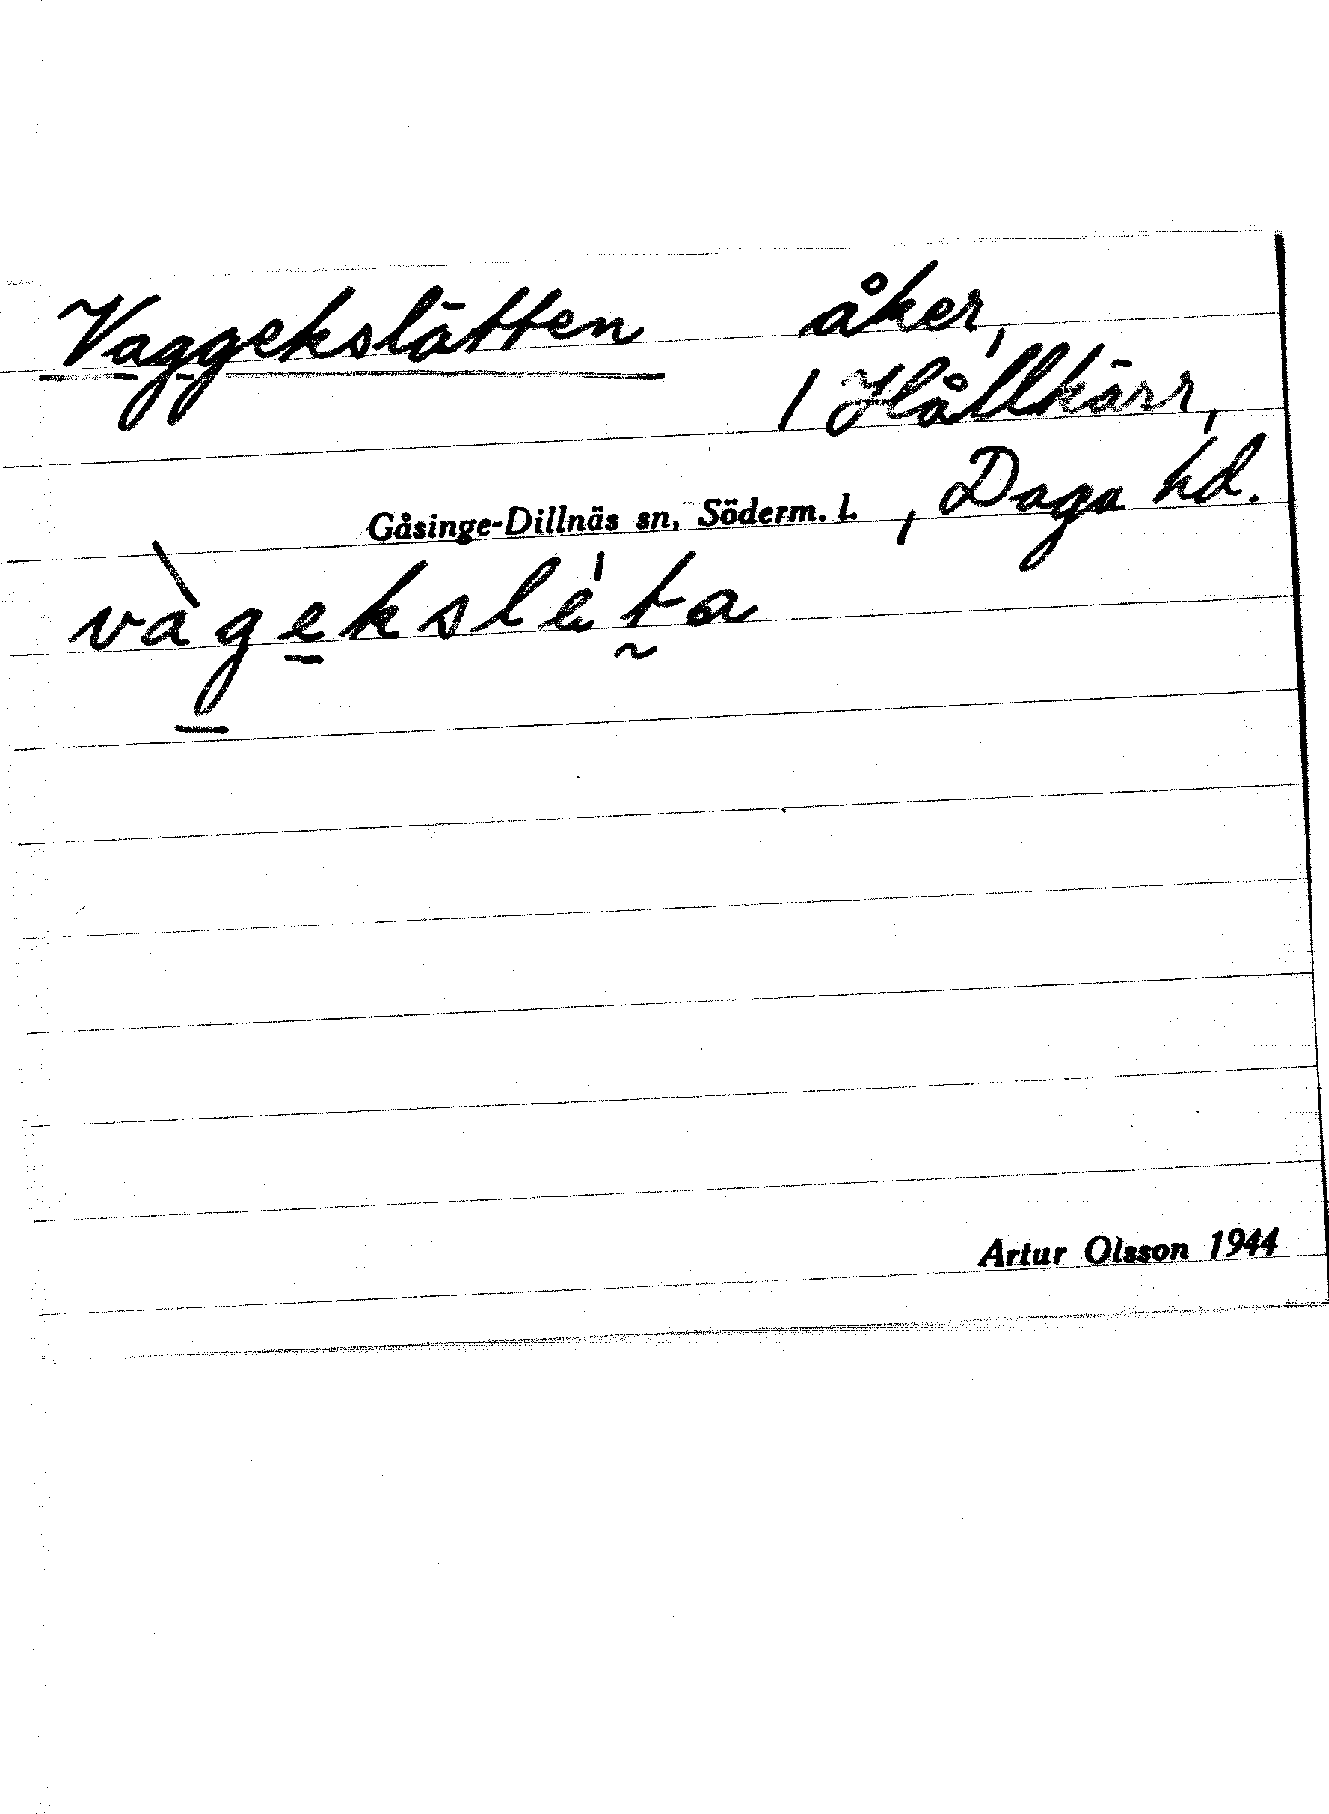 Vaggekslätten åker,
1 Hållkärr,
Gåsinge-Dillnäs sn, Söderm. l. , Daga hd.
vàgeksléta
Artur Olsson 1944